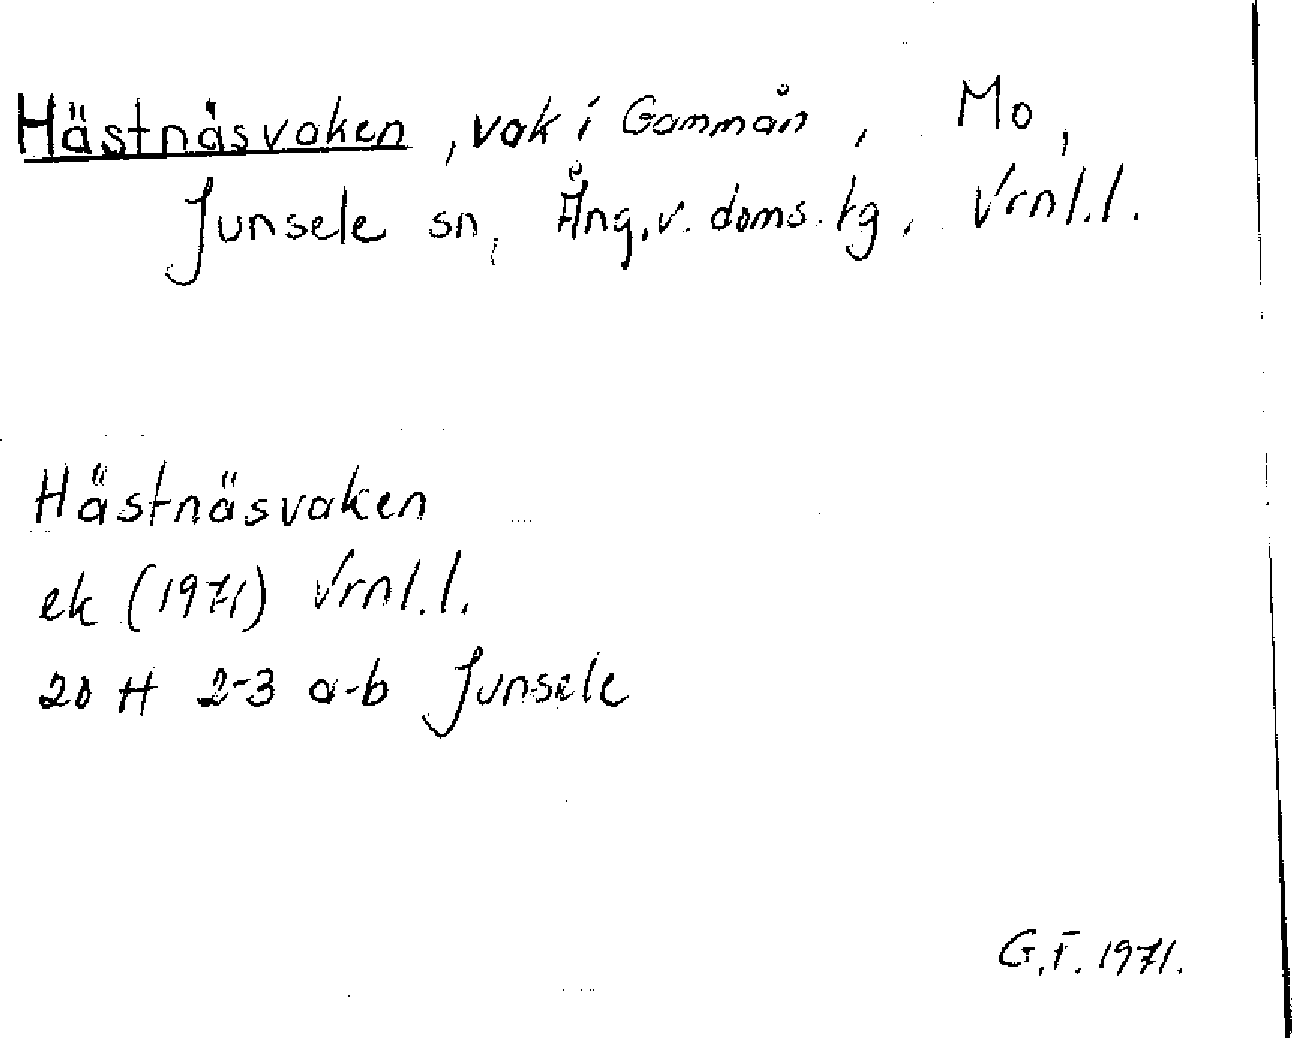 Hästnäsvaken, vak i Gammån, Mo,
Junsele sn, Ång.v. doms. tg, Vrnl.l.
Hästnäsvaken
ek (1971) Vrnl.l.
20 H 2-3 a-b Junsele
G.F. 1971.